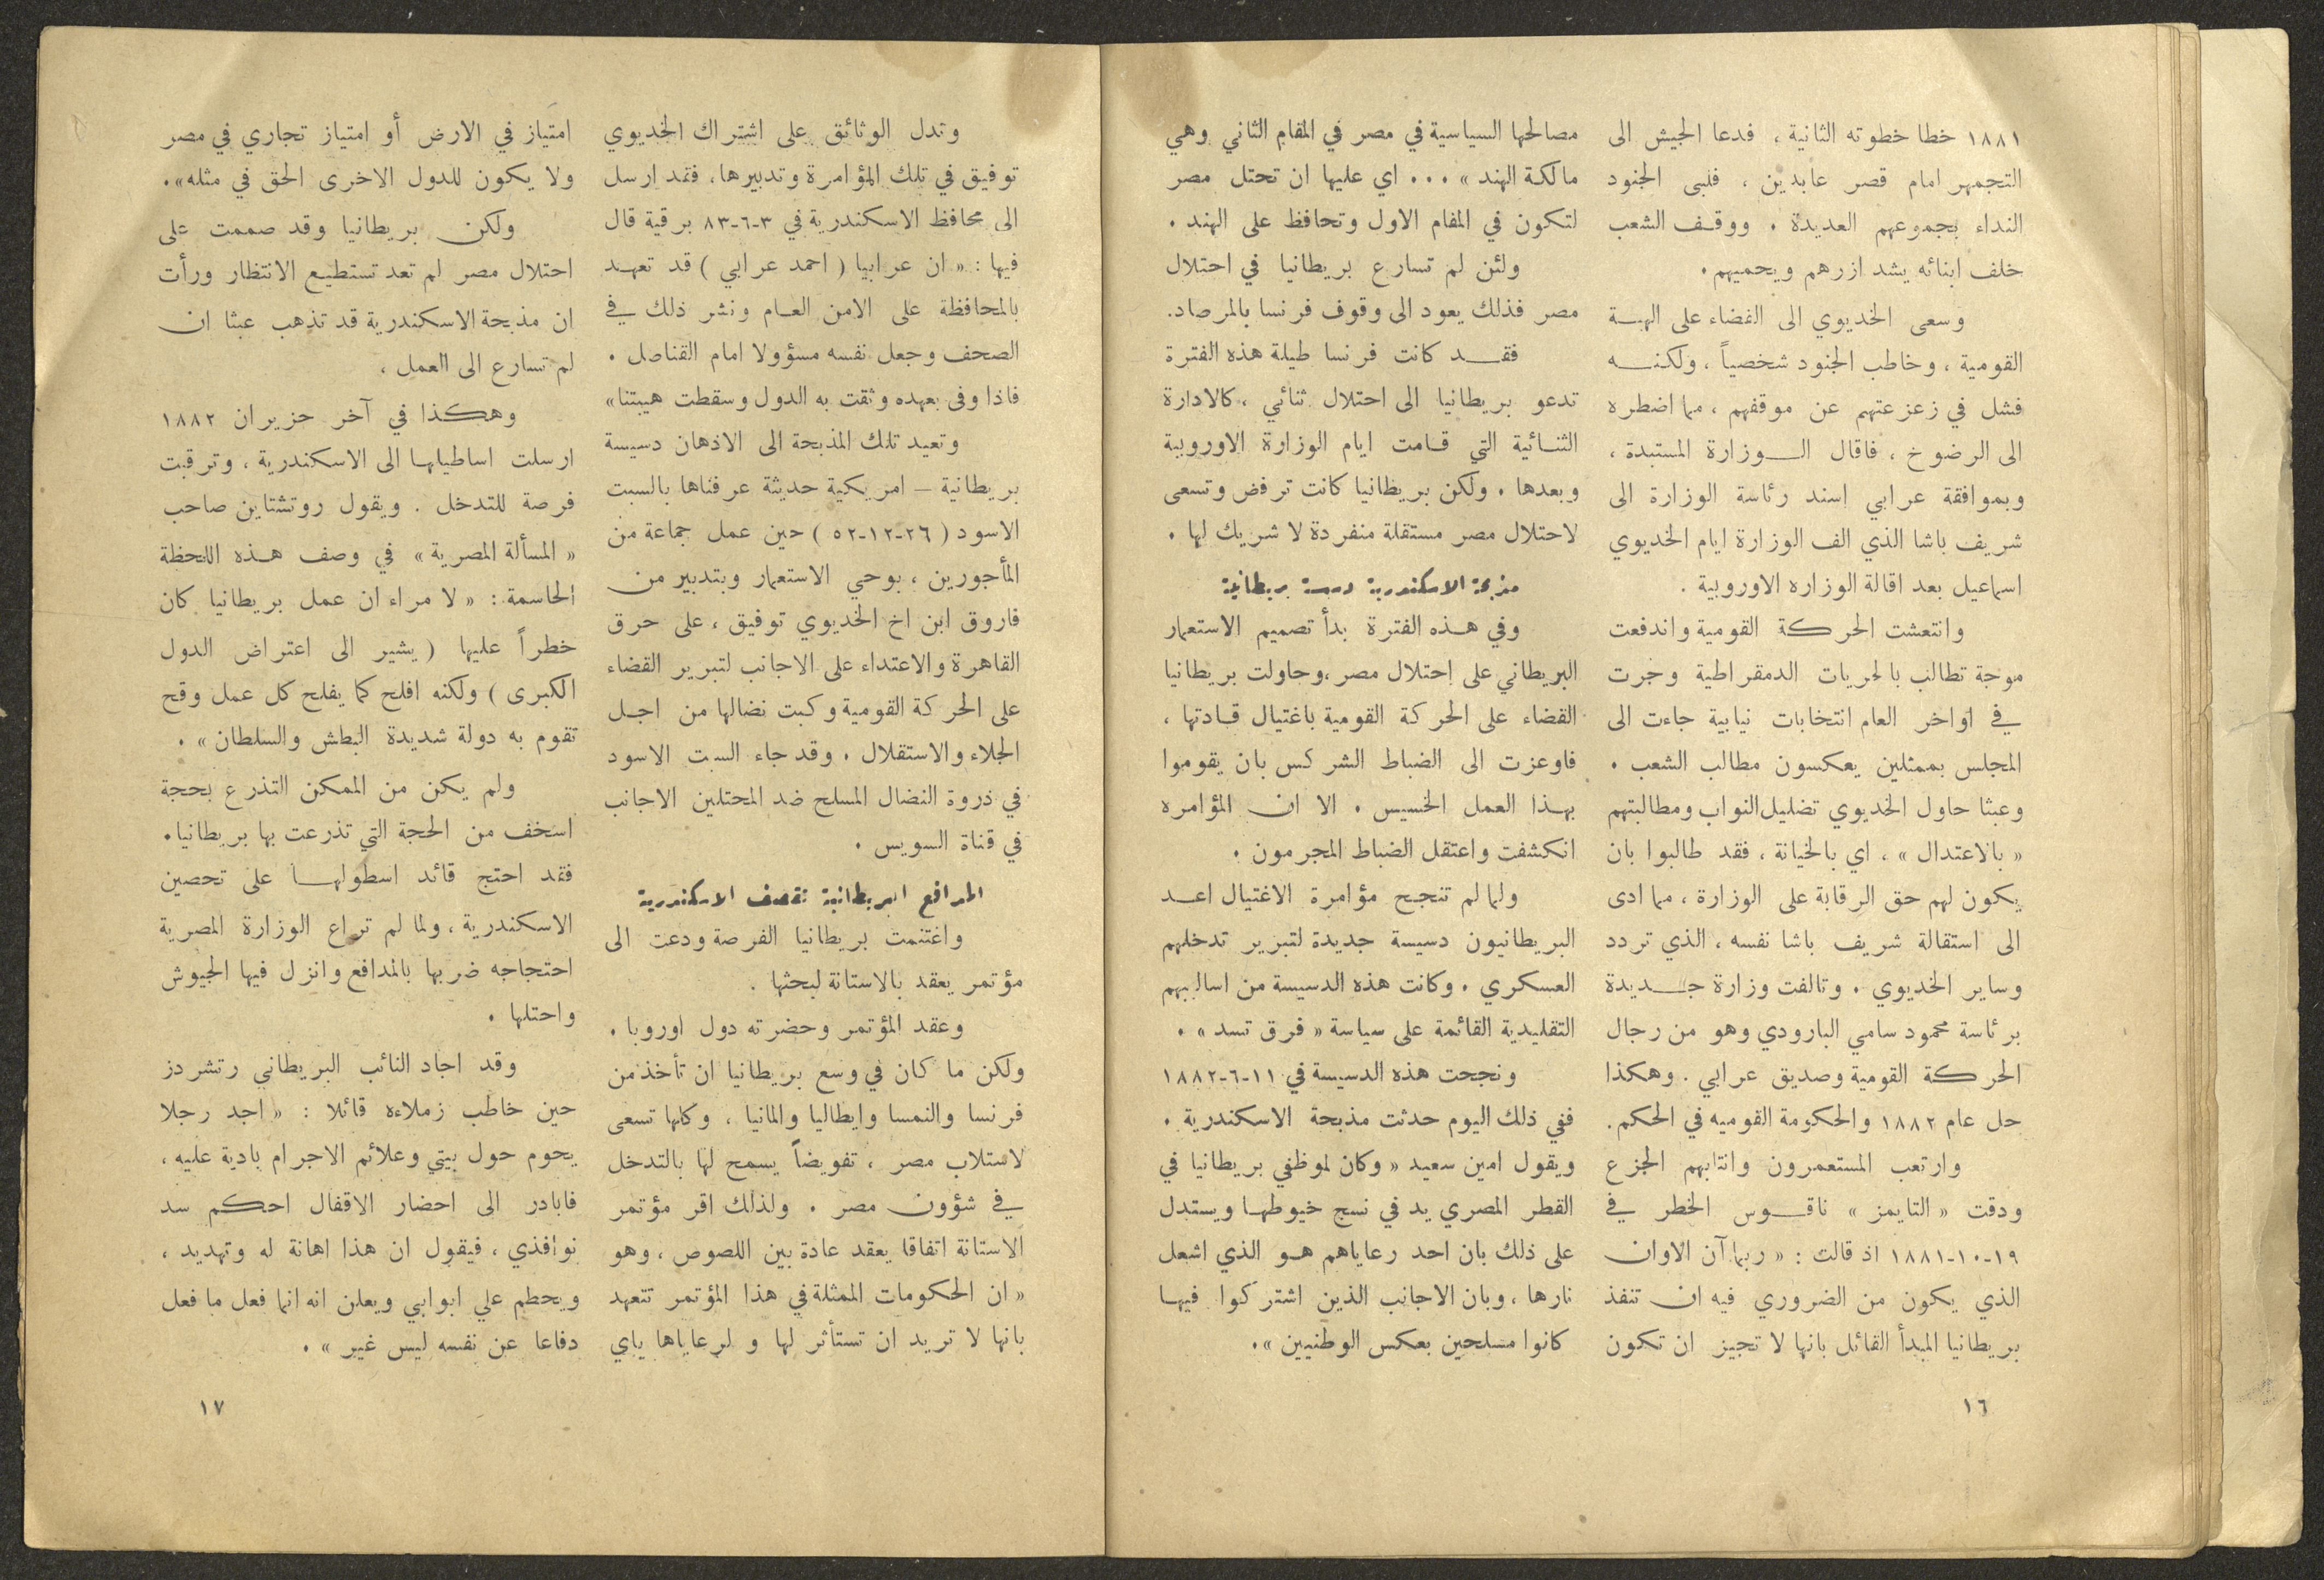 ١٨٨١ خطا خطوته الثانية ، فدعا الجيش الى
التجمهر امام قصر عابدين ، فلبى الجنود
النداء بجموعهم العديدة . ووقف الشعب
خلف ابنائه يشد ازرهم ويحميهم .
وسعى الخديوي الى القضاء على الهبة
القومية ، وخاطب الجنود شخصياً ، ولكنه
فشل في زعزعتهم عن موقفهم ، مما اضطره
الى الرضوخ ، فاقال الوزارة المستبدة ،
وبموافقة عرابي اسند رئاسة الوزارة الى
شريف باشا الذي الف الوزارة ايام الخديوي
اسماعيل بعد اقالة الوزاره الاوروبية .
وانتعشت الحركة القومية واندفعت
موجة تطالب بالحريات الدمقراطية وجرت
في اواخر العام انتخابات نيابية جاءت الى
المجلس بممثلين يعكسون مطالب الشعب .
وعبثا حاول الخديوي تضليل النواب ومطالبتهم
« بالاعتدال » ، اي بالخيانة ، فقد طالبوا بان
يكون لهم حق الرقابة على الوزارة ، مما ادى
الى استقالة شريف باشا نفسه ، الذي تردد
وساير الخديوي . وتالفت وزارة جديدة
برئاسة محمود سامي البارودي وهو من رجال
الحركة القومية وصديق عرابي . وهكذا
حل عام ١٨٨٢ والحكومة القوميه في الحكم .
وارتعب المستعمرون وانتابهم الجزع
ودقت « التايمز » ناقوس الخطر في
١٩-١٠-١٨٨١ اذ قالت : « ربما آن الاوان
الذي يكون من الضروري فيه ان تنفذ
بريطانيا المبدأ القائل بانها لا تجيز ان تكون
مصالحها السياسية في مصر في المقام الثاني وهي
مالكة الهند » ... اي عليها ان تحتل مصر
لتكون في المقام الاول وتحافظ على الهند .
ولئن لم تسارع بريطانيا في احتلال
مصر فذلك يعود الى وقوف فرنسا بالمرصاد .
فقد كانت فرنسا طيلة هذه الفترة
تدعو بريطانيا الى احتلال ثنائي ، كالادارة
الثنائية التي قامت ايام الوزارة الاوروبية
وبعدها . ولكن بريطانيا كانت ترفض وتسعى
لاحتلال مصر مستقلة منفردة لا شريك لها .
مذبحة الاسكندرية دسيسة بريطانية
وفي هذه الفترة بدأ تصميم الاستعمار
البريطاني على احتلال مصر ، وحاولت بريطانيا
القضاء على الحركة القومية باغتيال قادتها ،
فاوعزت الى الضباط الشركس بان يقوموا
بهذا العمل الخسيس . الا ان المؤامره
انكشفت واعتقل الضباط المجرمون .
ولما لم تنجح مؤامرة الاغتيال اعد
البريطانيون دسيسة جديدة لتبرير تدخلهم
العسكري . وكانت هذه الدسيسة من اساليبهم
التقليدية القائمة على سياسة « فرق تسد » .
ونجحت هذه الدسيسة في ١١-٦-١٨٨٢
ففي ذلك اليوم حدثت مذبحة الاسكندرية .
ويقول امين سعيد « وكان لموظفي بريطانيا في
القطر المصري يد في نسج خيوطها ويستدل
على ذلك بان احد رعاياهم هو الذي اشعل
نارها ، وبان الاجانب الذين اشتركوا فيها
كانوا مسلحين بعكس الوطنيين » .
١٦
وتدل الوثائق على اشتراك الخديوي
توفيق في تلك المؤامرة وتدبيرها ، فقد ارسل
الى محافظ الاسكندرية في ٣-٦-٨٣ برقية قال
فيها : « ان عرابيا ( احمد عرابي ) قد تعهد
بالمحافظة على الامن العام ونشر ذلك في
الصحف وجعل نفسه مسؤولا امام القناصل .
فاذا وفى بعهده وثقت به الدول وسقطت هيبتنا»
وتعيد تلك المذبحة الى الاذهان دسيسة
بريطانية – امريكية حديثة عرفناها بالسبت
الاسود ( ٢٦-١٢-٥٢ ) حين عمل جماعة من
المأجورين ، بوحي الاستعمار وبتدبير من
فاروق ابن اخ الخديوي توفيق ، على حرق
القاهرة والاعتداء على الاجانب لتبرير القضاء
على الحركة القومية وكبت نضالها من اجل
الجلاء والاستقلال . وقد جاء السبت الاسود
في ذروة النضال المسلح ضد المحتلين الاجانب
في قناة السويس .
المدافع البريطانية تقصف الاسكندرية
واغتنمت بريطانيا الفرصة ودعت الى
مؤتمر يعقد بالاستانة لبحثها .
وعقد المؤتمر وحضرته دول اوروبا .
ولكن ما كان في وسع بريطانيا ان تأخذ من
فرنسا والنمسا وايطاليا والمانيا ، وكلها تسعى
لاستلاب مصر ، تفويضاً يسمح لها بالتدخل
في شؤون مصر . ولذلك اقر مؤتمر
الاستانة اتفاقا يعقد عادة بين اللصوص ، وهو
« ان الحكومات الممثلة في هذا المؤتمر تتعهد
بانها لا تريد ان تستأثر لها و لرعاياها ياي
امتياز في الارض أو امتياز تجاري في مصر
ولا يكون للدول الاخرى الحق في مثله» .
ولكن بريطانيا وقد صممت على
احتلال مصر لم تعد تستطيع الانتظار ورأت
ان مذبحة الاسكندرية قد تذهب عبثا ان
لم تسارع الى العمل ،
وهكذا في آخر حزيران ١٨٨٢
ارسلت اساطيلها الى الاسكندرية ، وترقبت
فرصة للتدخل . ويقول روتشتاين صاحب
« المسألة المصرية » في وصف هذه اللحظة
الحاسمة : « لا مراء ان عمل بريطانيا كان
خطراً عليها ( يشير الى اعتراض الدول
الكبرى ) ولكنه افلح كما يفلح كل عمل وقح
تقوم به دولة شديدة البطش والسلطان » .
ولم يكن من الممكن التذرع بحجة
اسخف من الحجة التي تذرعت بها بريطانيا .
فقد احتج قائد اسطولها على تحصين
الاسكندرية ، ولما لم تراع الوزارة المصرية
احتجاجه ضربها بالمدافع وانزل فيها الجيوش
واحتلها .
وقد اجاد النائب البريطاني رتشردز
حين خاطب زملاءه قائلا : « اجد رجلا
يحوم حول بيتي وعلائم الاجرام بادية عليه ،
فابادر الى احضار الاقفال احكم سد
نوافذي ، فيقول ان هذا اهانة له وتهديد ،
ويحطم علي ابوابي ويعلن انه انما فعل ما فعل
دفاعا عن نفسه ليس غير » .
١٧